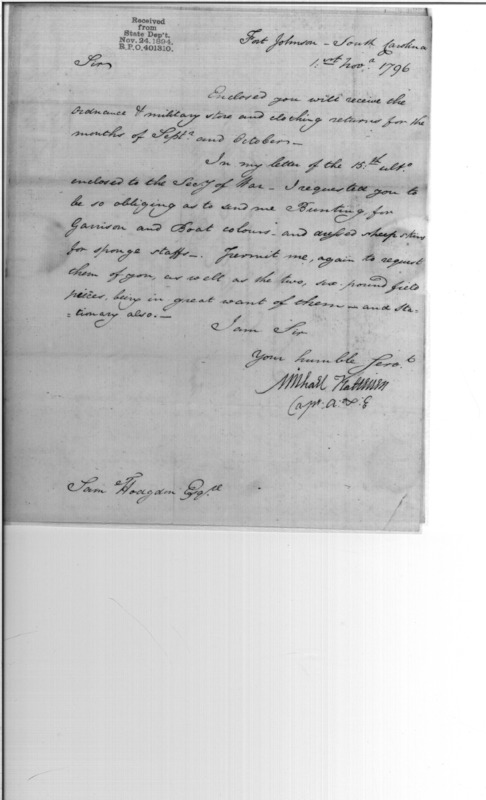 Received
from
State Dep't.
Nov. 24, 1894.
B.P.O. 401310.
Fort Johnson - South Carolina
1st Novr. 1796
Sir,
Enclosed you will receive the
ordnance & military store and clothing returns for the
months of Septr. and October -
In my letter of the 15th ulto.
enclosed to the Secy of War - I requested you to
be so obliging as to send me Bunting for
Garrison and Boat colours - and dressed sheep skins
for sponge staffs -. Permit me, again to request
them of you, as well as the two, six pound field
pieces, being in great want of them - and sta-
-tionary also. -
I am Sir
Your humble Servt
Michael
Capt. A & E
Saml Hodgdon Esqr